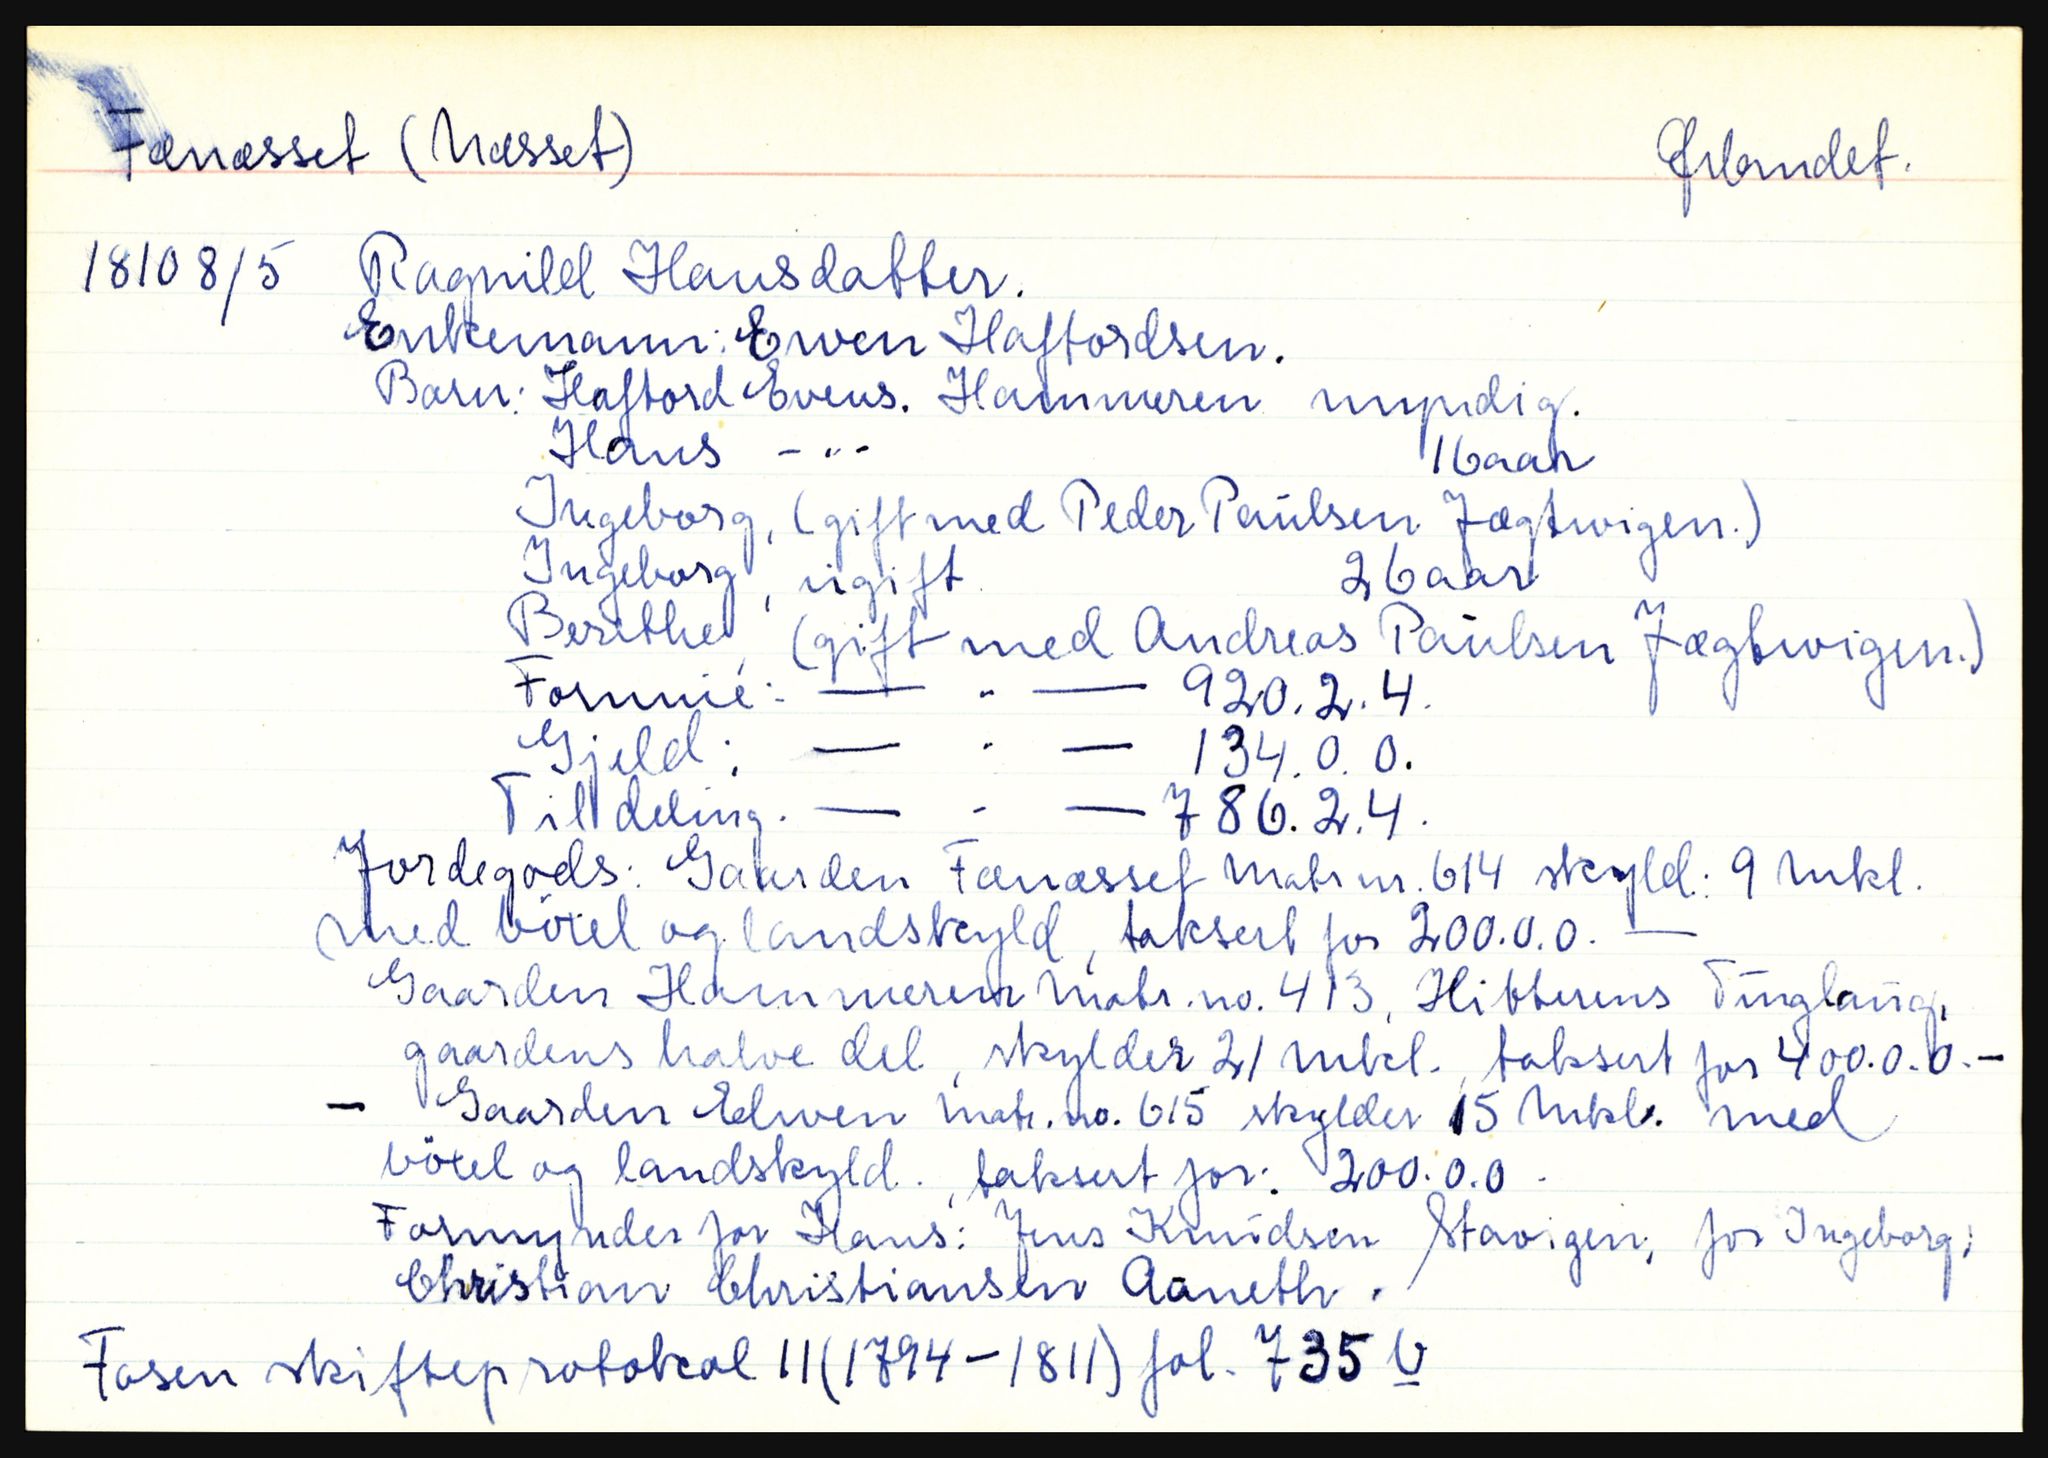 Fænæsset (Næsset) Ørlandet.
1810 8/5 Ragnild Hansdatter.
Enkemann: Ewen Haftordsen.
Barn: Haftord Evens. Hammeren myndig.
Hans -"- 16 aar
Ingeborg, (gift med Peder Paulsen Jægtwigen.)
Ingeborg, ugift 26 aar
Berithe, (gift med Andreas Paulsen Jægtwigen.)
Formue: — " — 920.2.4.
Gjeld: — " — 134.0.0.
Til deling. — " — 786.2.4.
Jordegods: Gaarden Fænæsset Matr nr. 614 skyld: 9 Mkl.
med böxel og landskyld, taksert for 200.0.0. —
Gaarden Hammeren Matr. no. 413, Hitterens Tinglaug,
gaardens halve del, skylder 21 Mkl., taksert for 400.0.0. -
- Gaarden Edwen Matr. no. 615 skylder 15 Mkl. med
böxel og landskyld., taksert for: 200.0.0.
Formynder for Hans: Jens Knudsen Stavigen, for Ingeborg:
Christian Christiansen Aaneth.
Fosen skifteprotokol 11 (1794-1811) fol. 735 b